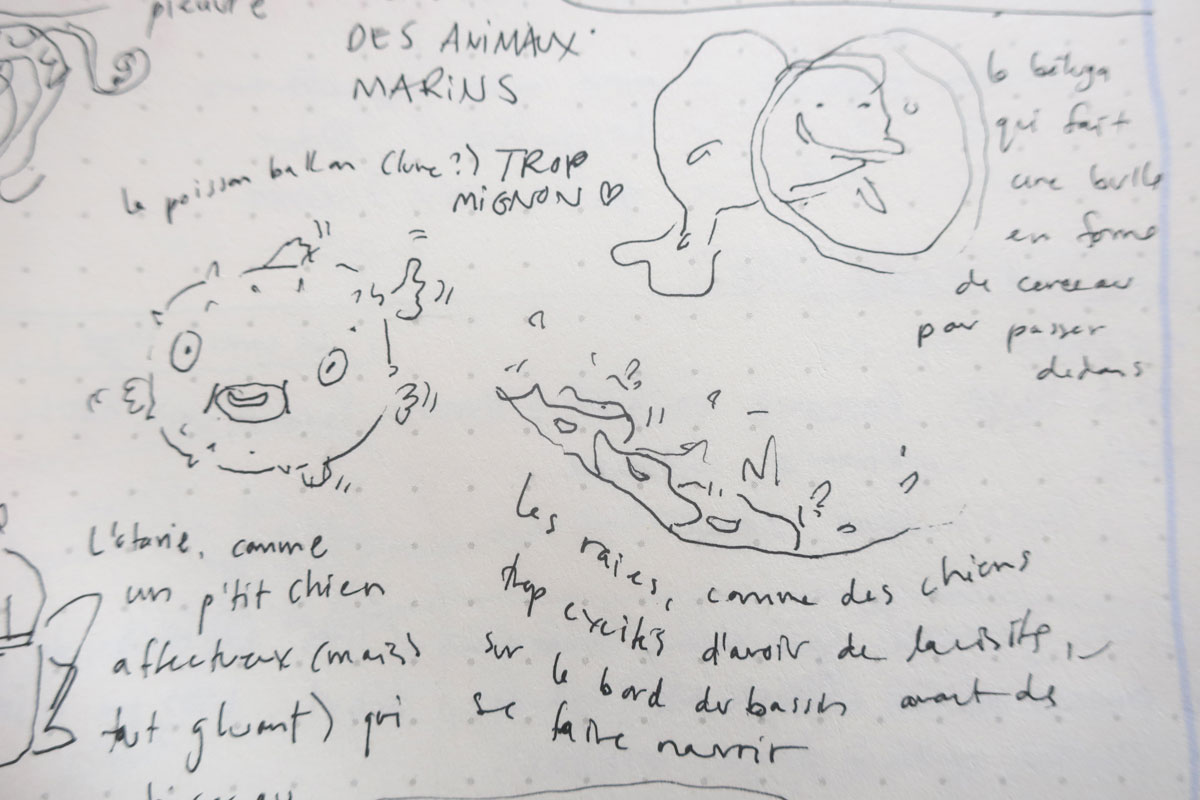 pieuvre
DES ANIMAUX
MARINS
le poisson ballon (lune ?) TROP
MIGNON ♡
le béluga
qui fait
une bulle
en forme
de cerceau
pour passer
dedans
L'otarie, comme
un p'tit chien
affectueux (mais
tout gluant) qui
Les raies, comme des chiens
trop excités d'avoir de la visite,
sur le bord du bassin avant de
se faire nourrir